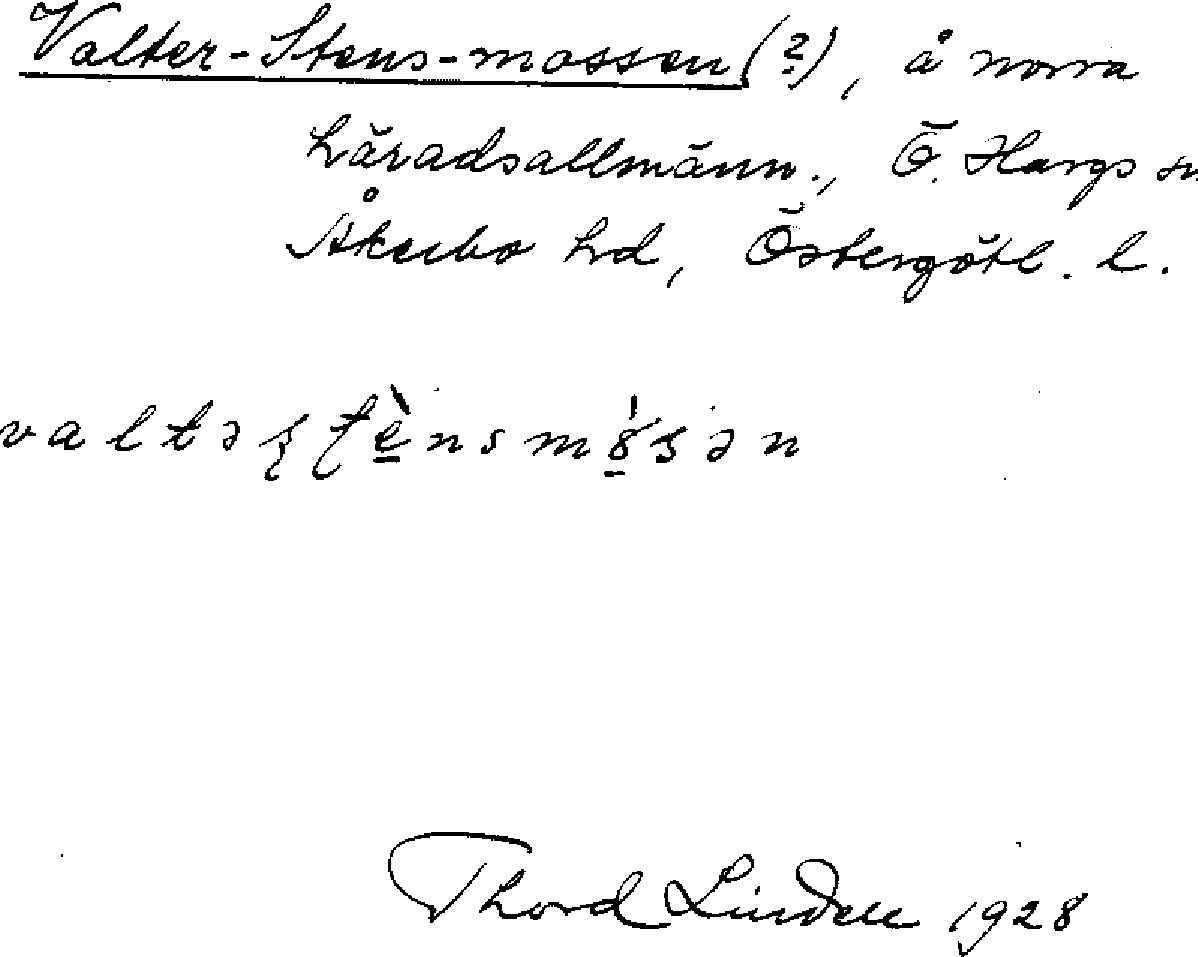 Valter-Stens-mossen (?), å norra
häradsallmänn., Ö. Hargs sn
Åkerbo hd, Östergötl. l.
Thord Lindell 1928